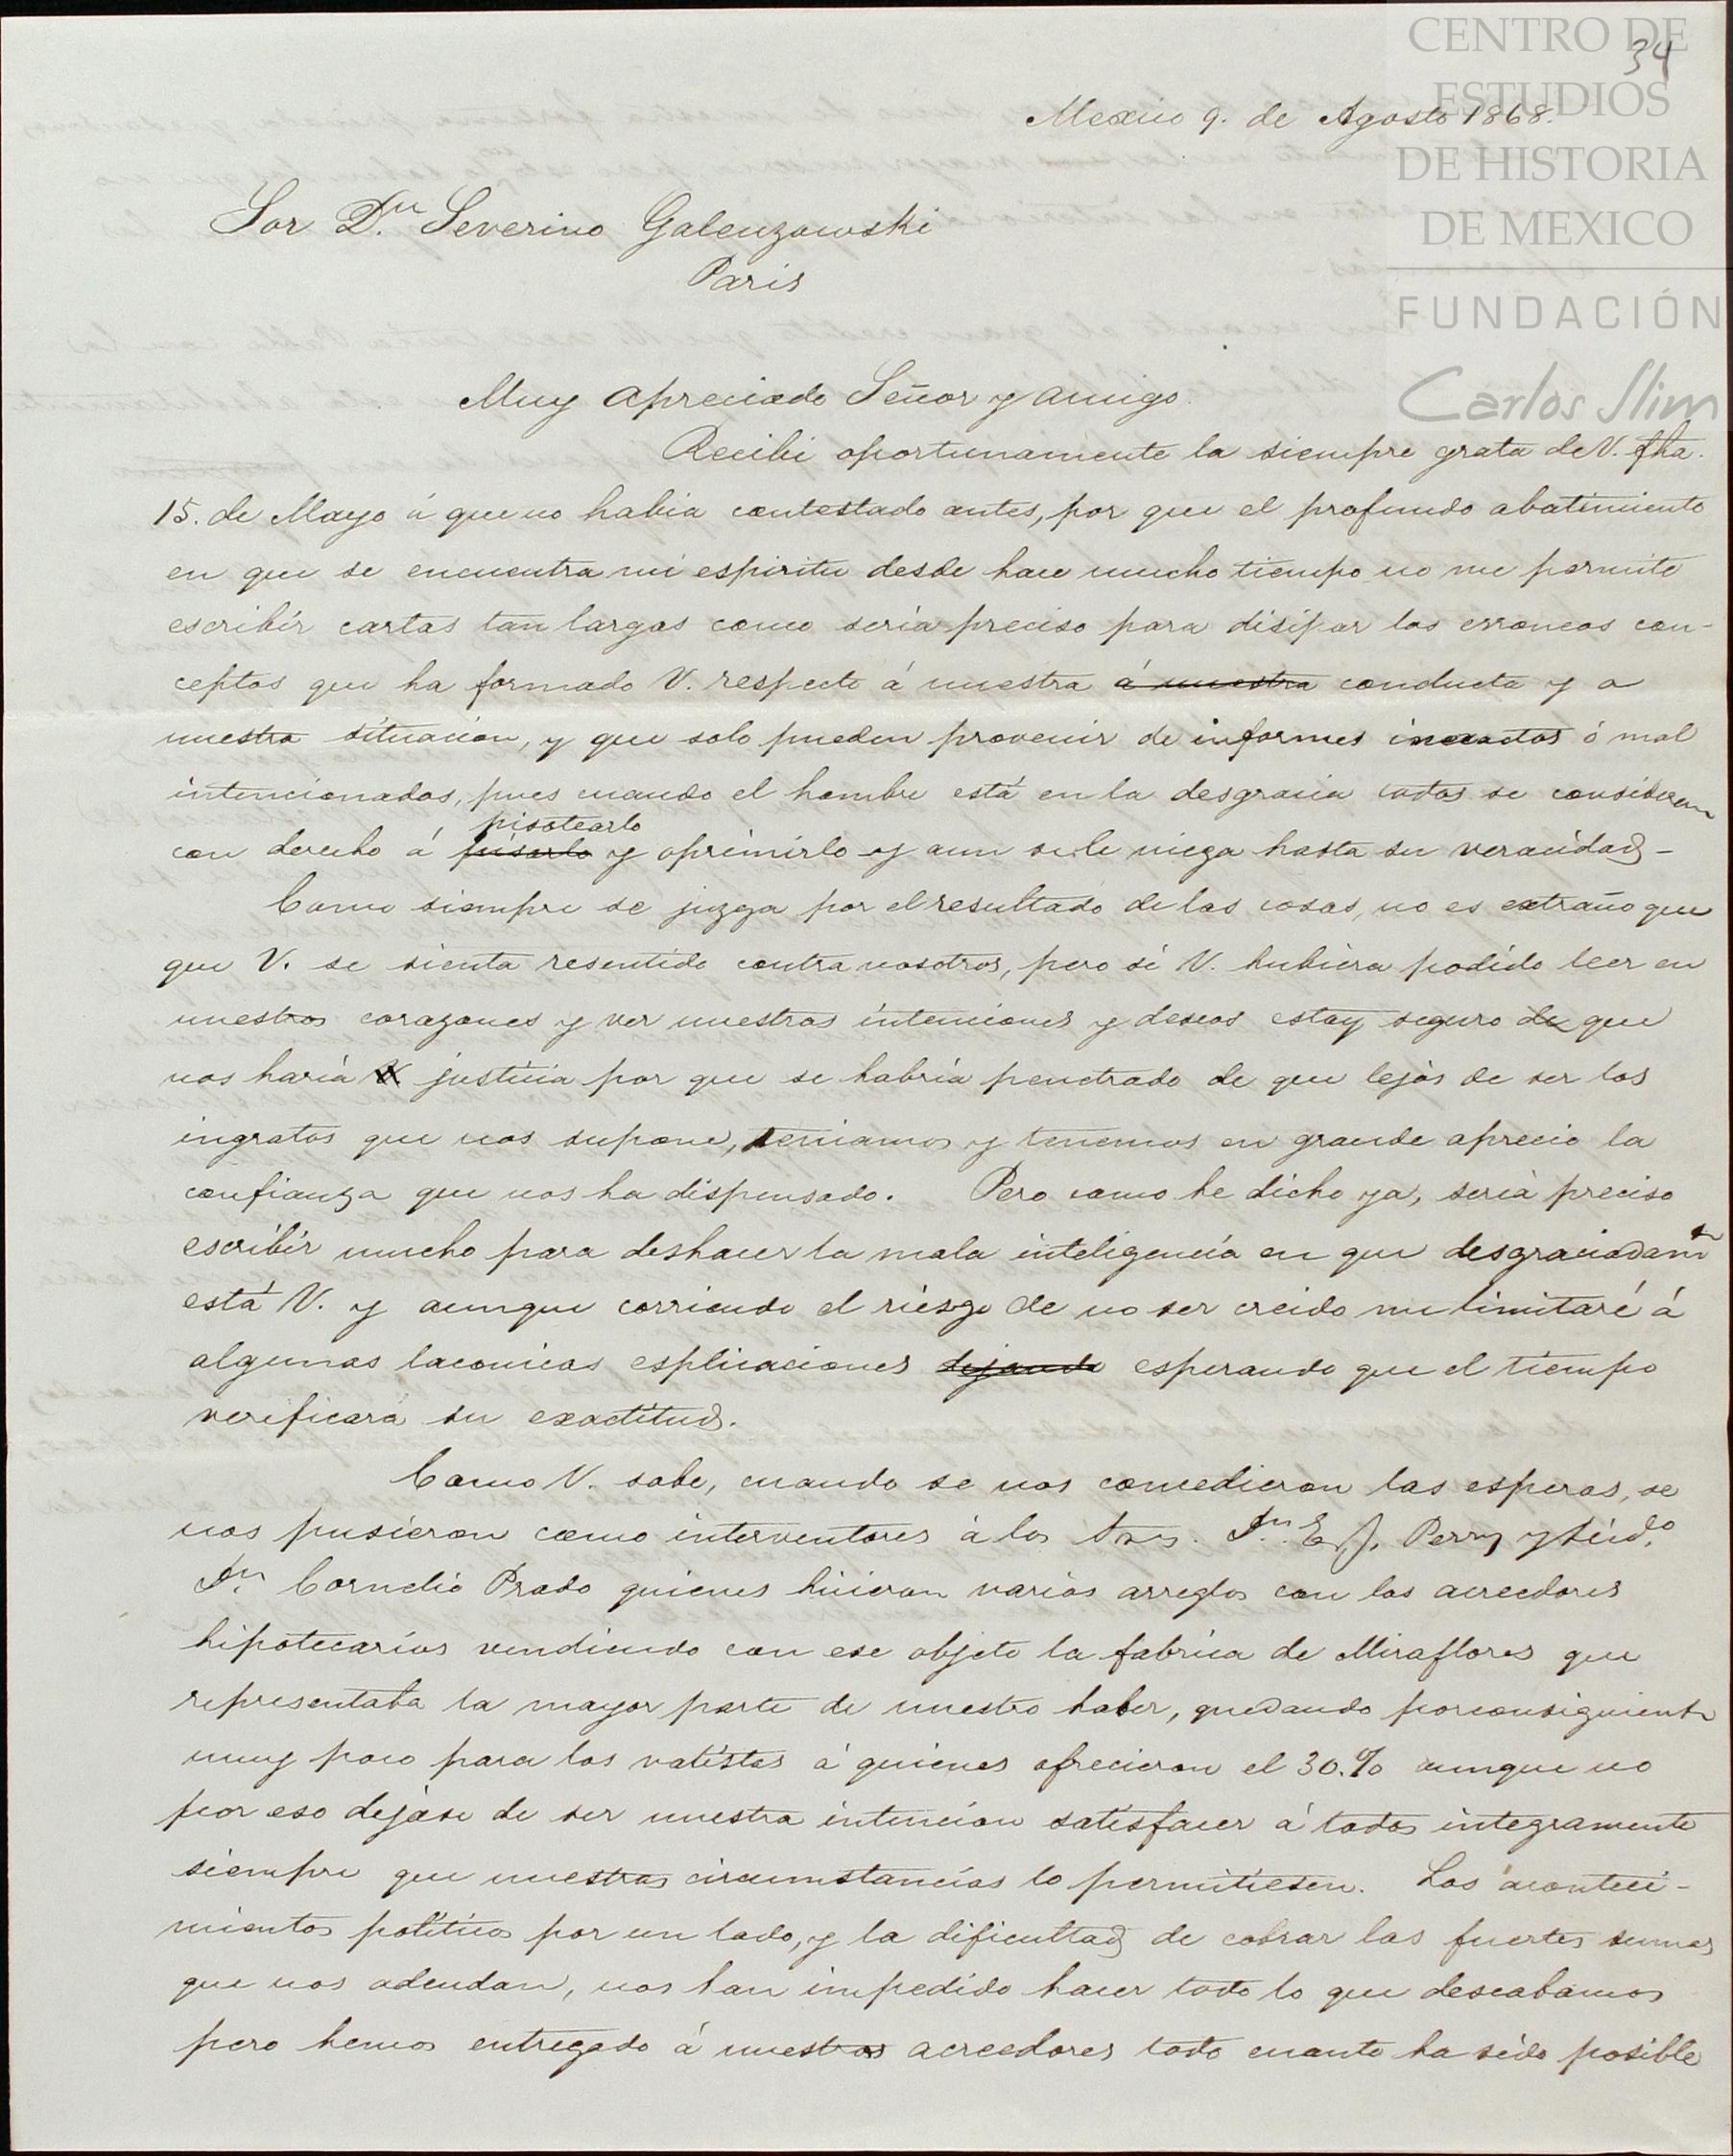 CENTRO DE
ESTUDIOS
DE HISTORIA
DE MEXICO
FUNDACIÓN
Carlos Slim
34
Mexico 9. de Agosto 1868.
Sor Dn. Severino Galenzowski
Paris
Muy apreciado Señor y amigo.
Recibi oportunamente la siempre grata de V. fha.
15. de Mayo á que no habia contestado antes, por que el profundo abatimiento
en que se encuentra mi espiritu desde hace mucho tiempo no me permite
escribir cartas tan largas como seria preciso para disipar los erroneos con-
ceptos que ha formado V. respecto á nuestra á nuestra conducta y a
nuestra situacion, y que solo pueden provenir de informes inexactos ó mal
intencionados, pues cuando el hombre está en la desgracia todos se consideran
pisotearlo
con derecho á pisarlo y oprimirlo y aun se le niega hasta su veracidad -
Como siempre se juzga por el resultado de las cosas, no es extraño que
que V. se sienta resentido contra nosotros, pero si V. hubiera podido leer en
nuestros corazones y ver nuestras intenciones y deseos estoy seguro de que
nos haria V justicia por que se habria penetrado de que lejos de ser los
ingratos que nos supone, teniamos y tenemos en grande aprecio la
confianza que nos ha dispensado. Pero como he dicho ya, seria preciso
escribir mucho para deshacer la mala inteligencia en que desgraciadamte
está V. y aunque corriendo el riesgo de no ser creido me limitaré á
algunas laconicas esplicaciones dejando esperando que el tiempo
verificará su exactitud.
Como V. sabe, cuando se nos concedieron las esperas, se
nos pusieron como interventores á los Sres. Dn. E. J. Perry y Licdo.
Dn Cornelio Prado quienes hicieron varios arreglos con los acreedores
hipotecarios vendiendo con ese objeto la fabrica de Miraflores que
representaba la mayor parte de nuestro haber, quedando porconsiguiente
muy poco para los valistas á quienes ofrecieron el 30.% aunque no
por eso dejase de ser nuestra intencion satisfacer á todos integramente
siempre que nuestras circumstancias lo permitiesen. Los aconteci-
mientos politicos por un lado, y la dificultad de cobrar las fuertes sumas
que nos adeudan, nos han impedido hacer todo lo que deseabamos
pero hemos entregado á nuestros acreedores todo cuanto ha sido posible